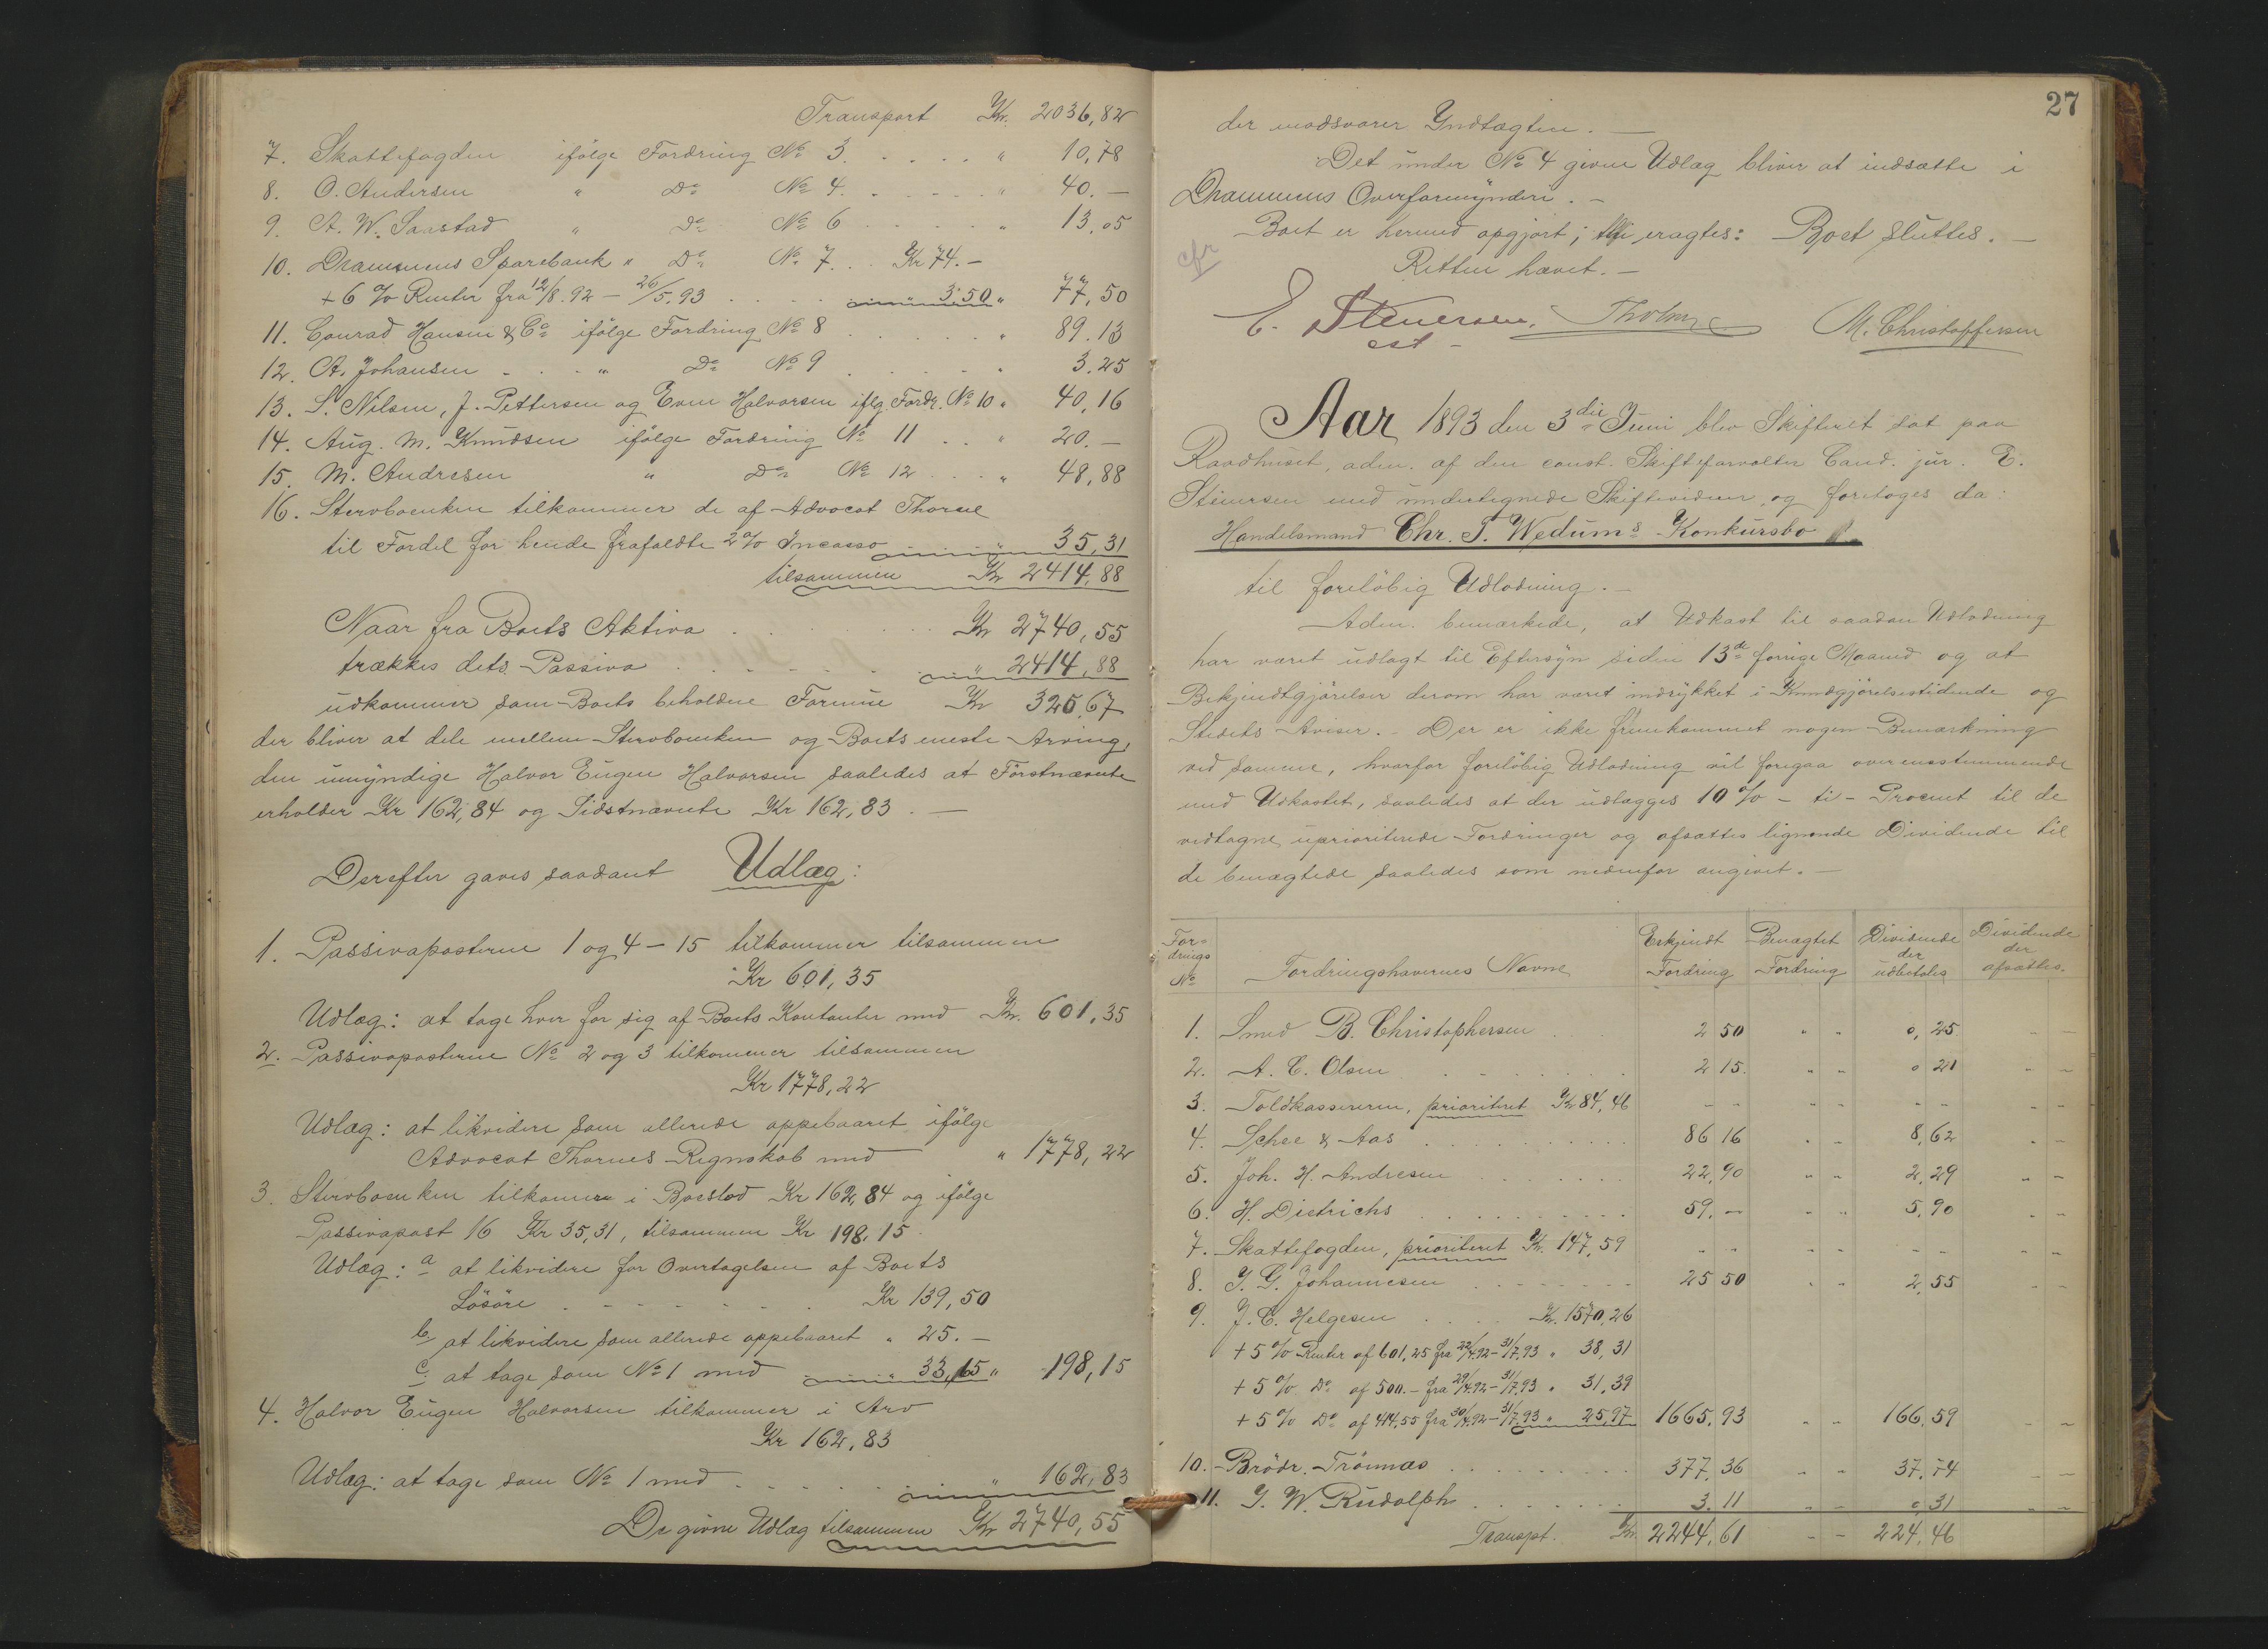 Transport Kr. 2036,82
7. Skattefogden ifölge Fordring No 3. . . . . " 10,78
8. O. Andersen " Do No 4. . . . . " 40.—
9. A. W. Saastad " Do No 6 . . . . " 13,05
10. Drammens Sparebank " Do No 7. . Kr 74.—
+ 6 % Renter fra 12/8.92 — 26/5.93 . . . . " 3.50 " 77,50
11. Conrad Hansen & Co ifölge Fordring No 8 . . . . . " 89.13
12. A. Johansen . . . " Do No 9 . . . . " 3.25
13. S. Nilsen, J. Pettersen og Even Halvorsen iflg. Fordr. No 10 " 40,16
14. Aug. M. Knudsen ifölge Fordring No 11 . . " 20.—
15. M. Andresen " Do No 12 . . . " 48,88
16. Stervboenken tilkommer de af Advocat Thorne
til Fordel for hende frafaldte 2 % Incasso . . . . " 35,31
tilsammen Kr 2414,88
Naar fra Boets Aktiva . . . . . . Kr 2740,55
trækkes dets Passiva . . . . . " 2414,88
udkommer som Boets beholdne Formue Kr 325,67
der bliver at dele mellem Stervboenken og Boets eneste Arving,
den umyndige Halvor Eugen Halvorsen saaledes at Förstnævnte
erholder Kr 162,84 og Sidstnævnte Kr 162,83 . —
Derefter gaves saadant Udlæg:
1. Passivaposterne 1 og 4 — 15 tilkommer tilsammen
Kr 601,35
Udlæg: at tage hver for sig af Boets Kontanter med Kr. 601,35
2. Passivaposterne No 2 og 3 tilkommer tilsammen
Kr 1778,22
Udlæg: at likvidere som allerede oppebaaret ifölge
Advocat Thornes Regnskab med " 1778,22
3. Stervboenken tilkommer i Boeslod Kr 162,84 og ifölge
Passivapost 16 Kr 35,31, tilsammen Kr 198,15.
Udlæg: a at likvidere for Overtagelsen af Boets
Lösöre . . . . . . . Kr 139,50
b at likvidere som allerede oppebaaret " 25.—
c. at tage som No 1 med . . . . " 33,65 " 198,15
4. Halvor Eugen Halvorsen tilkommer i Arv
Kr 162,83
Udlæg: at tage som No 1 med . . . . . . " 162,83
De givne Udlæg tilsammen Kr 2740,55
27
der modsvarer Indtægten. —
Det under No 4 givne Udlæg bliver at indsætte i
Drammens Overformynderi. —
Boet er hermed opgjort; thi eragtes: Boet sluttes. —
cfr
Retten hævet. —
E. Steuersen. Tholmsen M. Christoffersen
cst —
Aar 1893 den 3die Juni blev Skifteret sat paa
Raadhuset, adm. af den const. Skifteforvalter Cand. jur. E.
Steuersen med undertegnede Skiftevidner, og foretoges da:
Handelsmand Chr. T. Wedums Konkursbo
til foreløbig Udlodning. —
Adm. bemærkede, at Udkast til saadan Udlodning
har været udlagt til Eftersyn siden 13de forrige Maaned og at
Bekjendtgjörelser derom har været indrykket i Kundgjörelsestidende og
Stedets Aviser. — Der er ikke fremkommet nogen Bemærkning
ved samme, hvorfor foreløbig Udlodning vil foregaa overensstemmende
med Udkastet, saaledes at der udlægges 10 % — ti — Procent til de
vedtagne, uprioriterede Fordringer og afsættes lignende Dividende til
de benægtede saaledes som nedenfor angivet. —
Fordrings No Fordringshavernes Navne Erkjendt Fordring Benægtet Fordring Dividende der udbetales Dividende der afsættes.
1. Smed B. Christophersen 2 50 " " 0,25 — —
2. A. C. Olsen . . . . . . 2 15. " " 0 21 — —
3. Toldkassereren, prioriteret Kr 84,46 — — " " — — — —
4. Schee & Aas . . . . . . . 86 16 " " 8,62 — —
5. Joh. H. Andresen . . . . . 22,90 " " 2,29 — —
6. H. Dietrichs . . . . . . . 59,— " " 5,90 — —
7. Skattefogden, prioriteret Kr. 147,59 " " " " — — — —
8. J. G. Johannesen . . . . . 25 50 " " 2,55 — —
9. J. C. Helgesen . . . . Kr. 1570,26
+ 5 % Renter af 601,25 fra 22/4.92 — 31/7.93 " 38,31
+ 5 % Do af 500.— fra 29/4.92 — 31/7.93 " 31,39
+ 5 % Do af 414,55 fra 30/4.92 — 31/7.93 " 25,97 1665,93 " " 166,59 — —
10. Brödr. Trönnæs . . . . . . 377,36 " " 37,74 — —
11. J. W. Rudolph . . . . . . 3.11 " " 0,31 — —
Transpt. Kr. 2244,61 — — 224,46